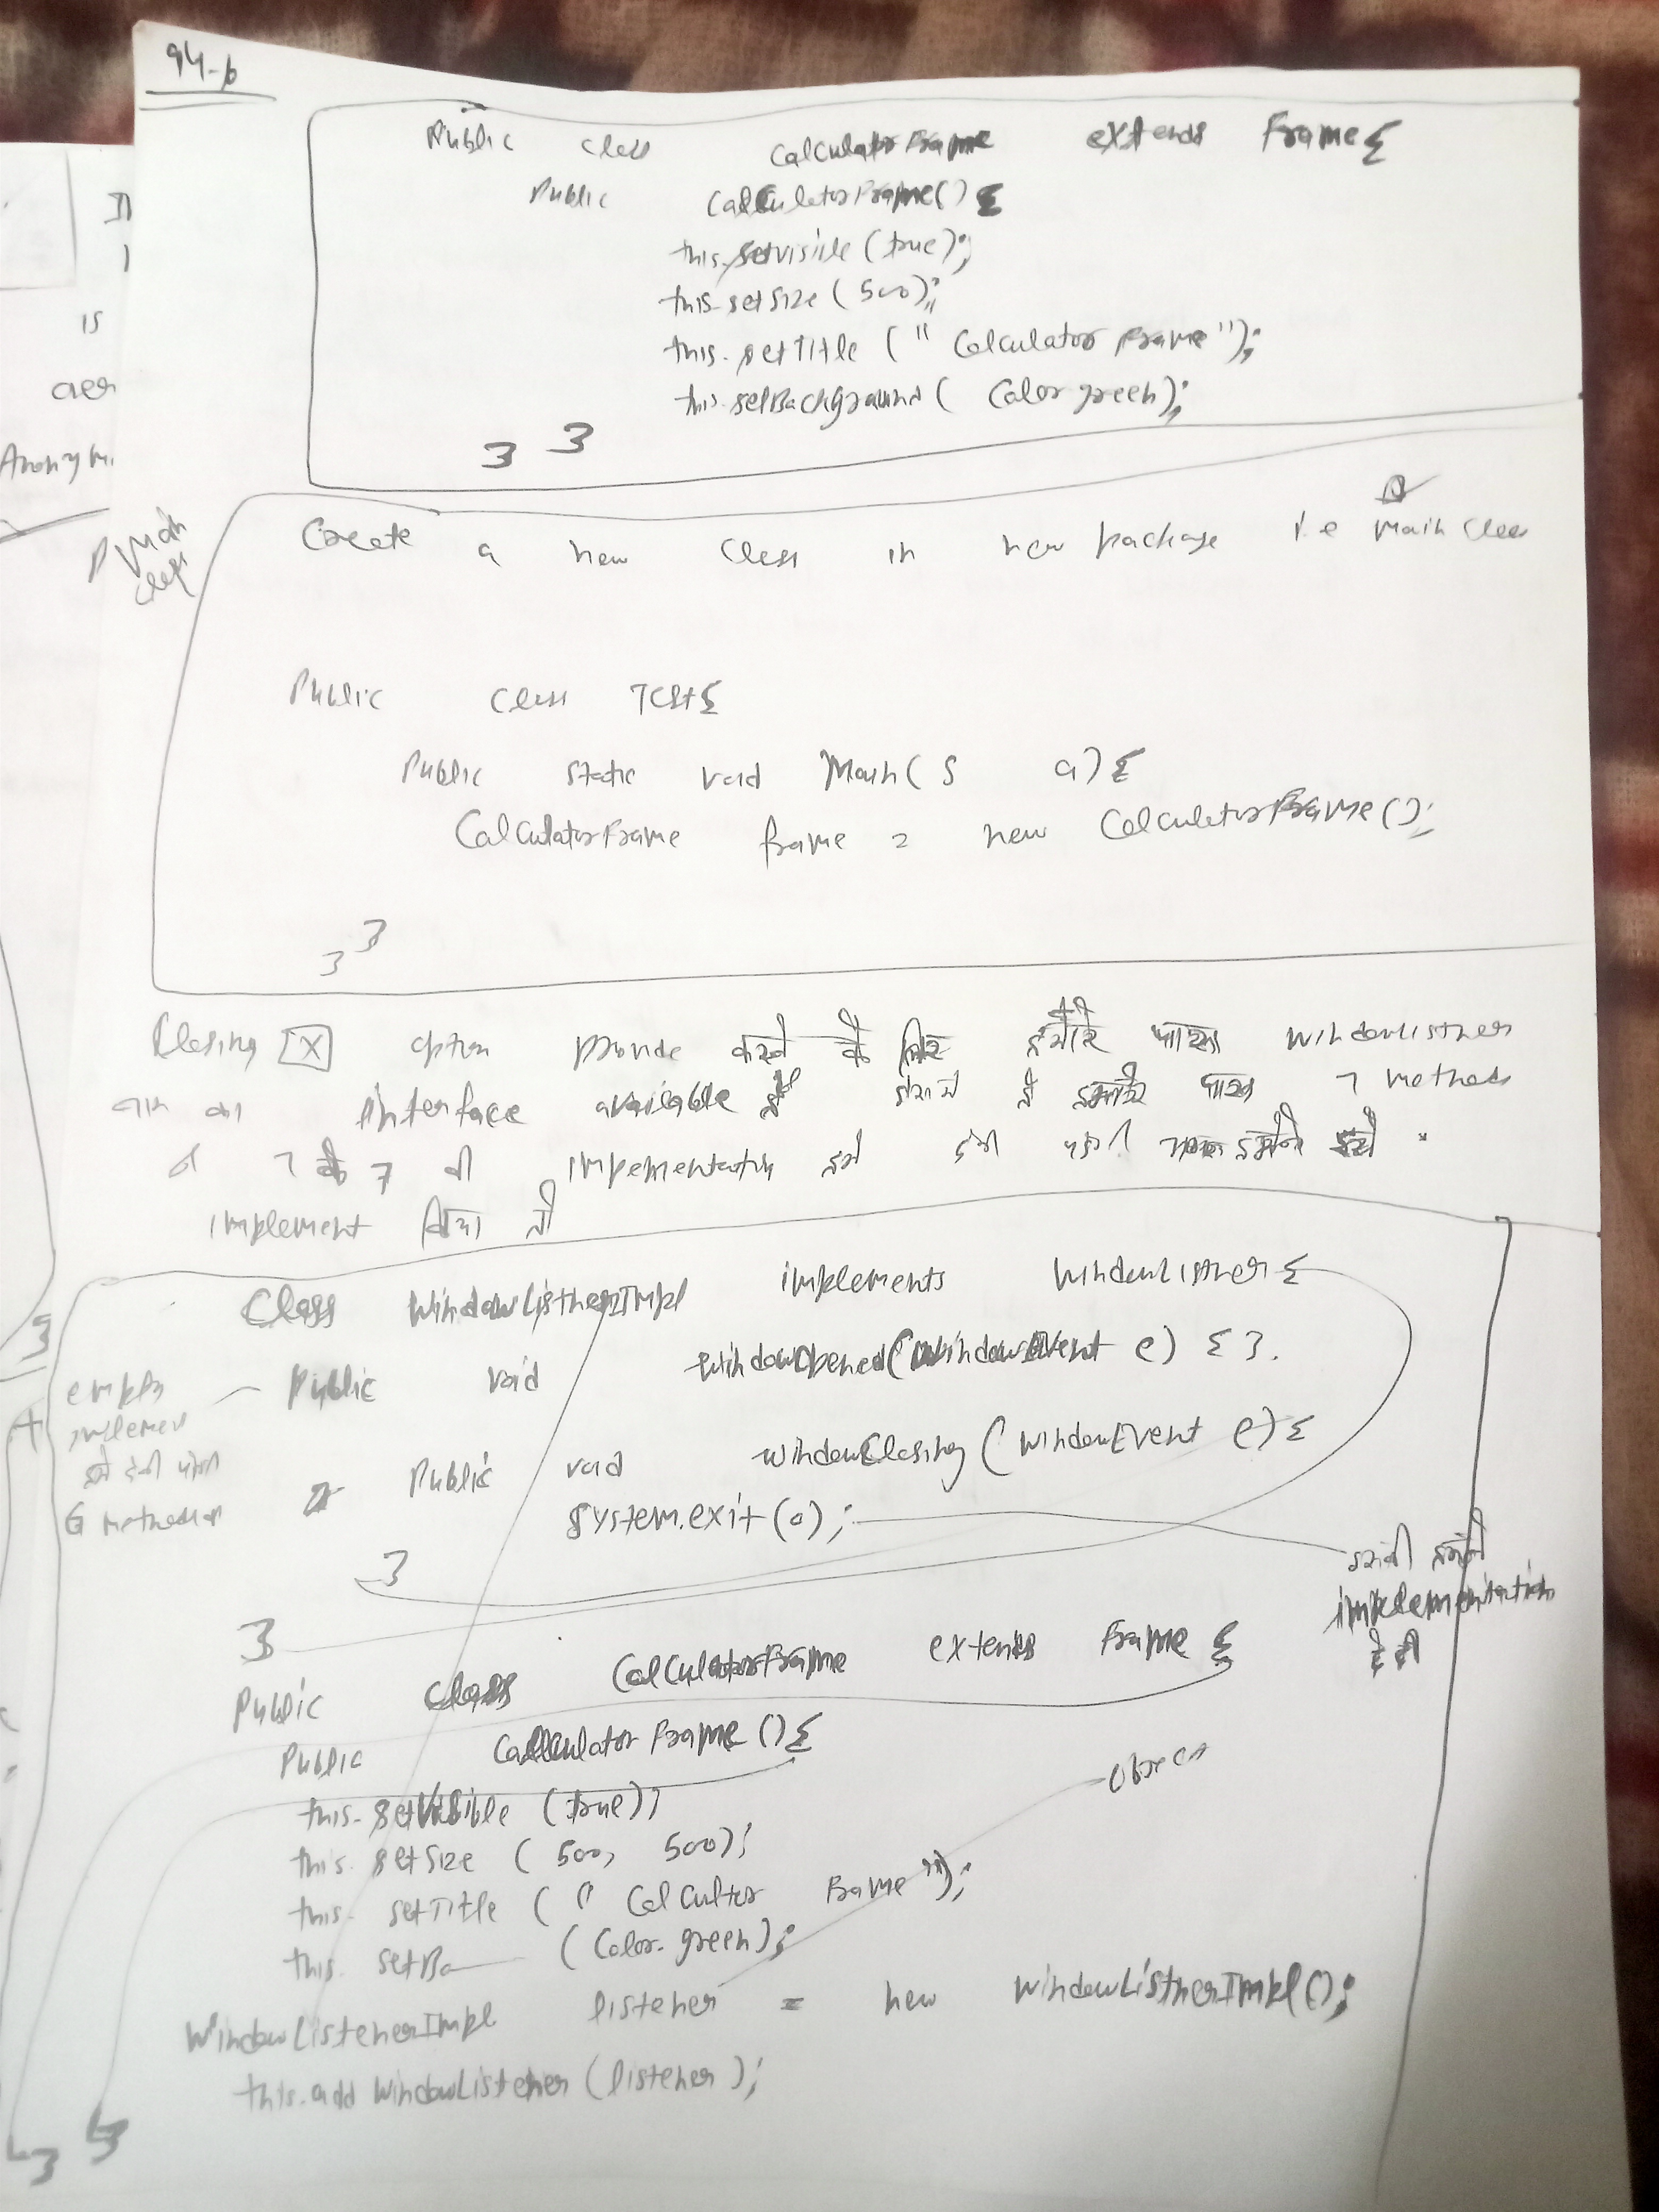 94-b
Public class CalculatorFrame extends Frame{
Public CalculatorFrame() {
this.setvisible (true);
this.setSize (500);
this.setTitle (" Calculator Frame");
this.setBackground( Color green);
} }
Create a new Class in new package i.e Main Class
Main
class
Public Class Test{
Public static void Main( S a) {
CalculatorFrame frame = new CalculatorFrame();
} }
Closing [X] option provide करने के लिए हमारे पास windowListner
नाम का interface available है इस में हमारे पास 7 methods
7 के 7 की implementation हमे देनी पड़ेगी
implement किया तो
Class WindowListnerImpl implements WindowListner {
empty Public void windowOpened(WindowEvent e) { }.
implemen
हमे देनी पड़ेगी
6 methods Public void windowClosing ( WindowEvent e) {
System.exit (0) ;
}
implementation
दे दी
}
Public class CalculatorFrame extends Frame {
Public CalculatorFrame () {
Object
this. setVisible (true);
this. setSize ( 500, 500);
this. setTitle ( " Calcultor Frame");
this. setBa (Color. green);
WindowListenerImpl listener = new WindowListnerImpl();
this.add WindowListener (listener );
} }
In
is
Anonym